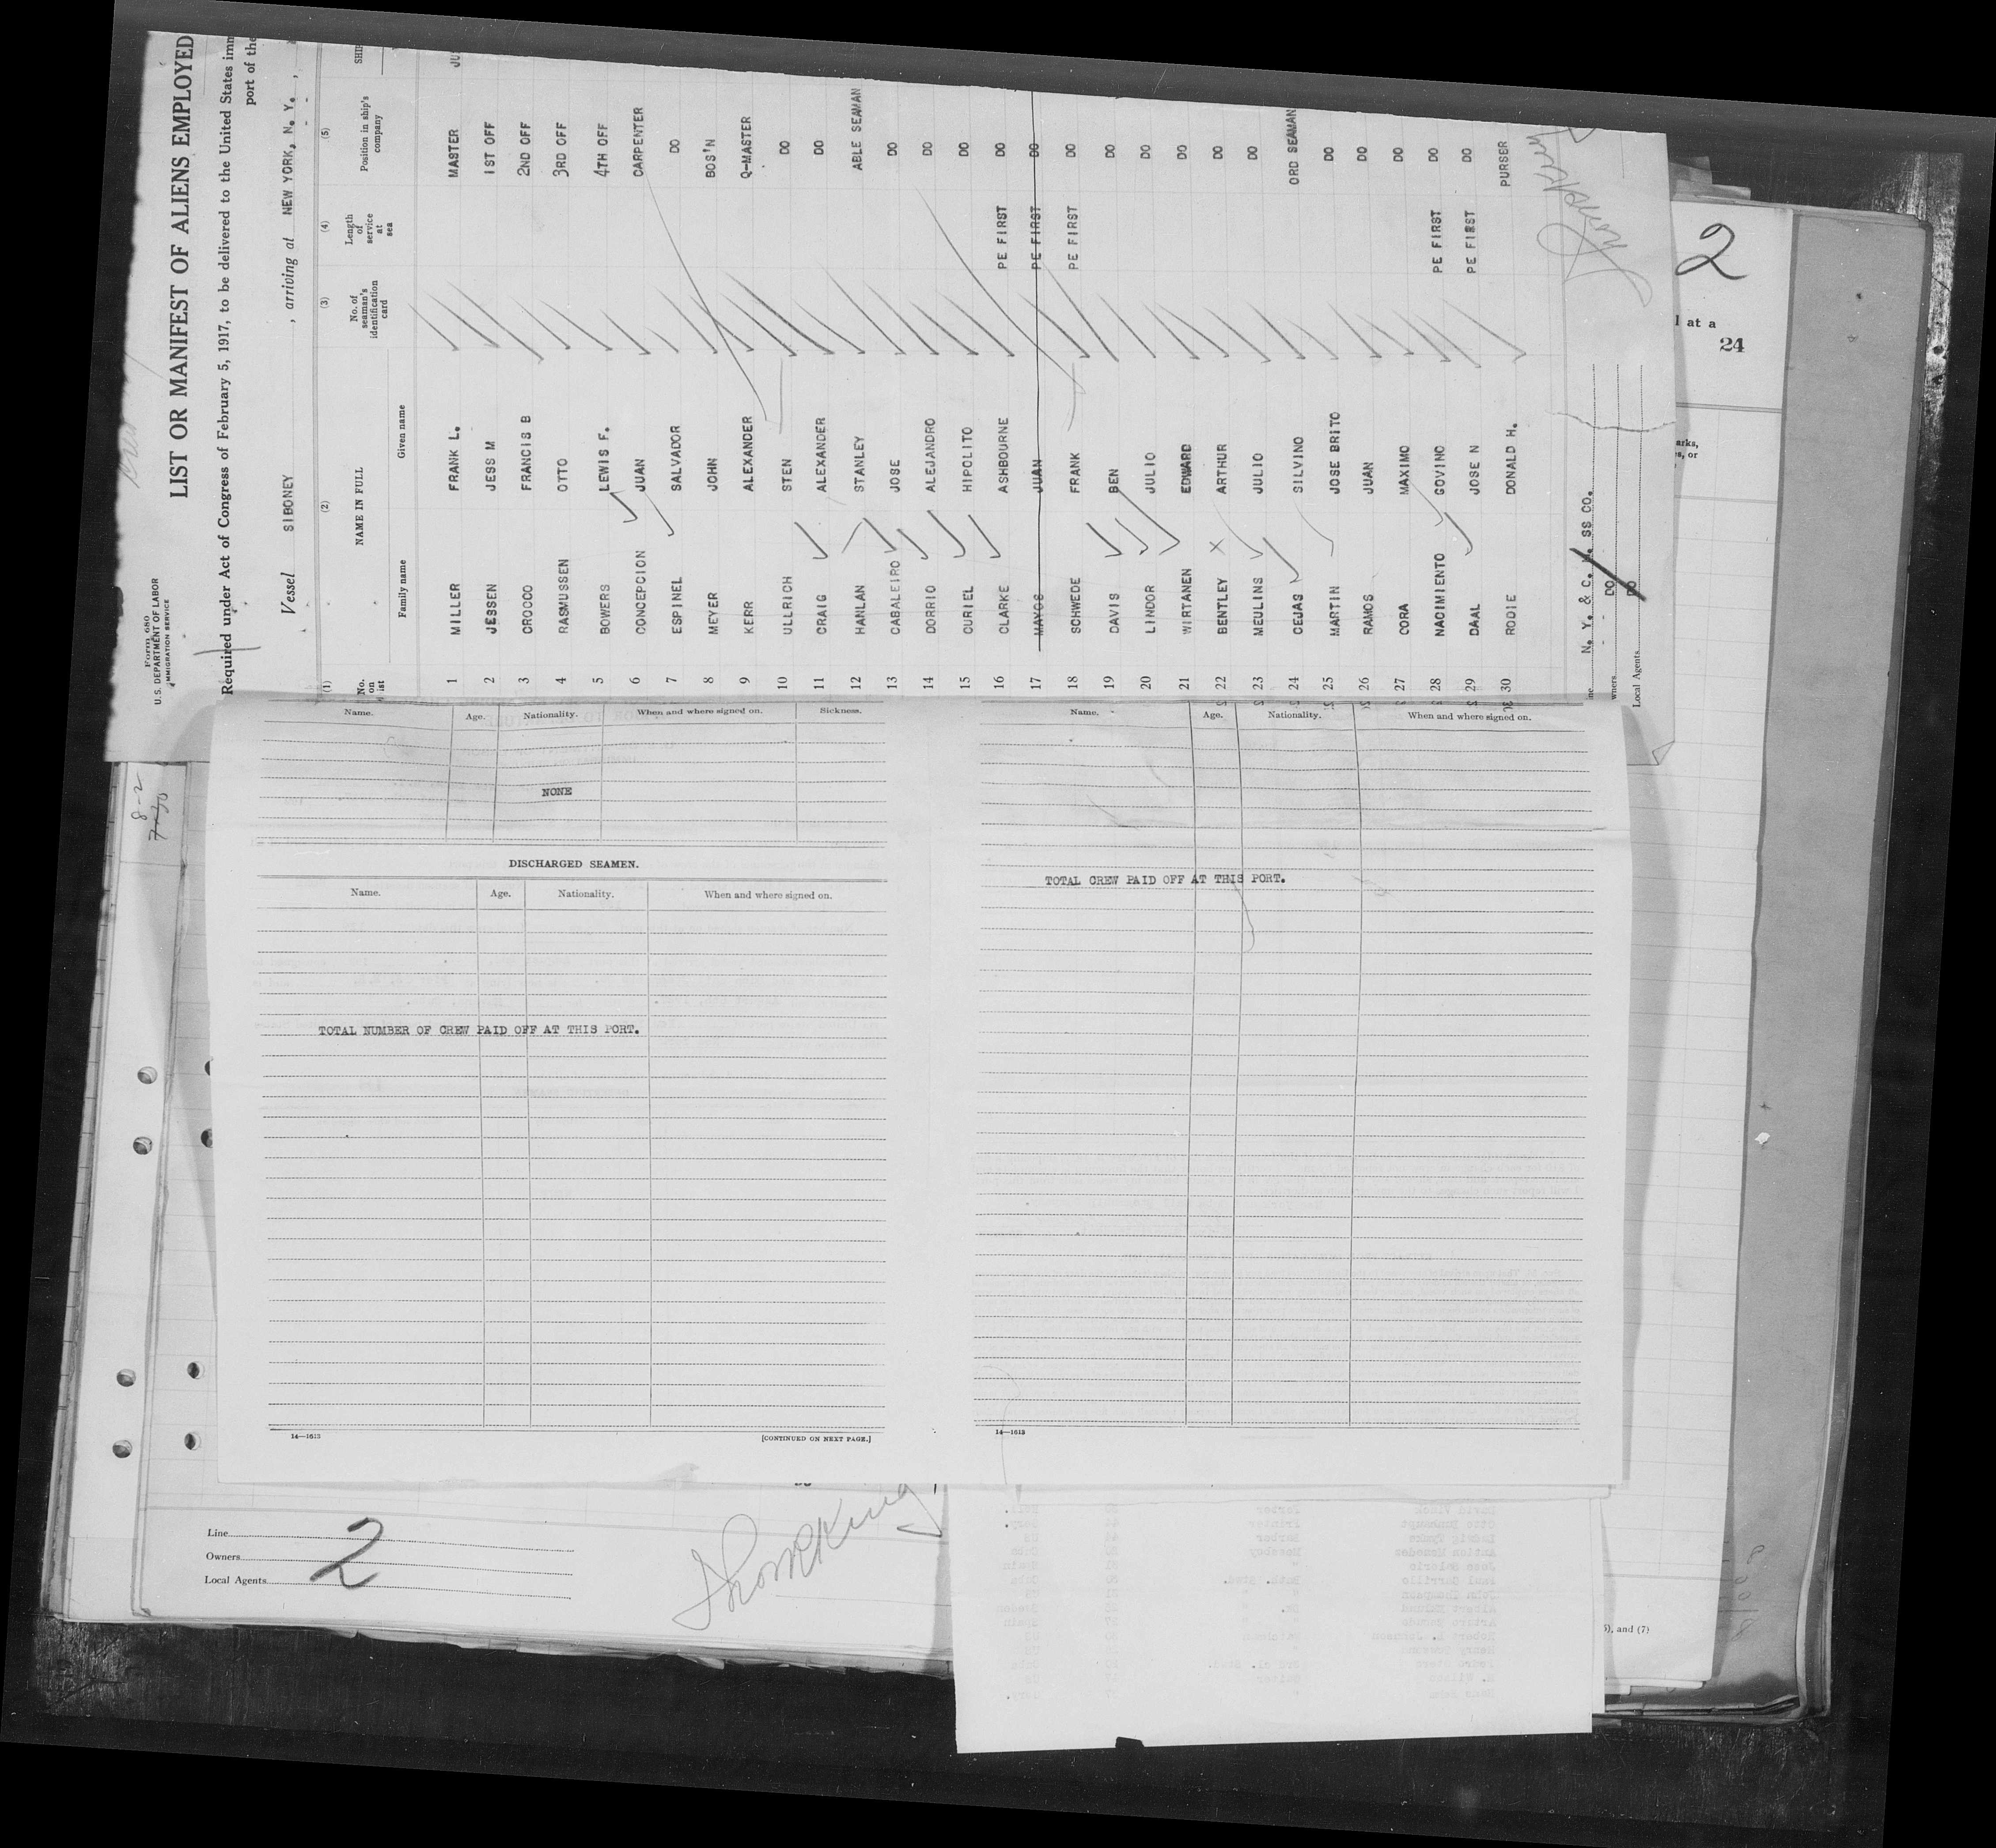 Form 680
U.S. DEPARTMENT OF LABOR
IMMIGRATION SERVICE
LIST OR MANIFEST OF ALIENS EMPLOYED
Required under Act of Congress of February 5, 1917, to be delivered to the United States imm
port of the
Vessel SIBONEY , arriving at NEW YORK, N. Y. ,
(1) (2) (3) (4) (5)
No. on list NAME IN FULL No. of seaman's identification card Length of service at sea Position in ship's company SHIP
Family name Given name
1 MILLER FRANK L. MASTER JU
2 JESSEN JESS M 1ST OFF
3 CROCCO FRANCIS B 2ND OFF
4 RASMUSSEN OTTO 3RD OFF
5 BOWERS LEWIS F. 4TH OFF
6 CONCEPCION JUAN CARPENTER
7 ESPINEL SALVADOR DO
8 MEYER JOHN BOS'N
9 KERR ALEXANDER Q-MASTER
10 ULLRICH STEN DO
11 CRAIG ALEXANDER DO
12 HANLAN STANLEY ABLE SEAMAN
13 CABALEIRO JOSE DO
14 DORRIO ALEJANDRO DO
15 CURIEL HIPOLITO DO
16 CLARKE ASHBOURNE PE FIRST DO
17 MAYOS JUAN PE FIRST DO
18 SCHWEDE FRANK PE FIRST DO
19 DAVIS BEN DO
20 LINDOR JULIO DO
21 WIRTANEN EDWARD DO
22 BENTLEY ARTHUR DO
23 MEULINS JULIO DO
24 CEJAS SILVINO ORD SEAMAN
25 MARTIN JOSE BRITO DO
26 RAMOS JUAN DO
27 CORA MAXIMO DO
28 NACIMIENTO GOVINO PE FIRST DO
29 DAAL JOSE N PE FIRST DO
30 RODIE DONALD H. PURSER
N. Y. & C. M. SS CO.
DO
Local Agents DO
2
l at a
24
arks,
s, or
8-2
7-30
Name. Age. Nationality. When and where signed on. Sickness.
NONE
DISCHARGED SEAMEN.
Name. Age. Nationality. When and where signed on.
TOTAL NUMBER OF CREW PAID OFF AT THIS PORT.
14—1613 [CONTINUED ON NEXT PAGE.]
Name. Age. Nationality. When and where signed on.
TOTAL CREW PAID OFF AT THIS PORT.
14—1613
Line
Owners
Local Agents
2
), and (7)